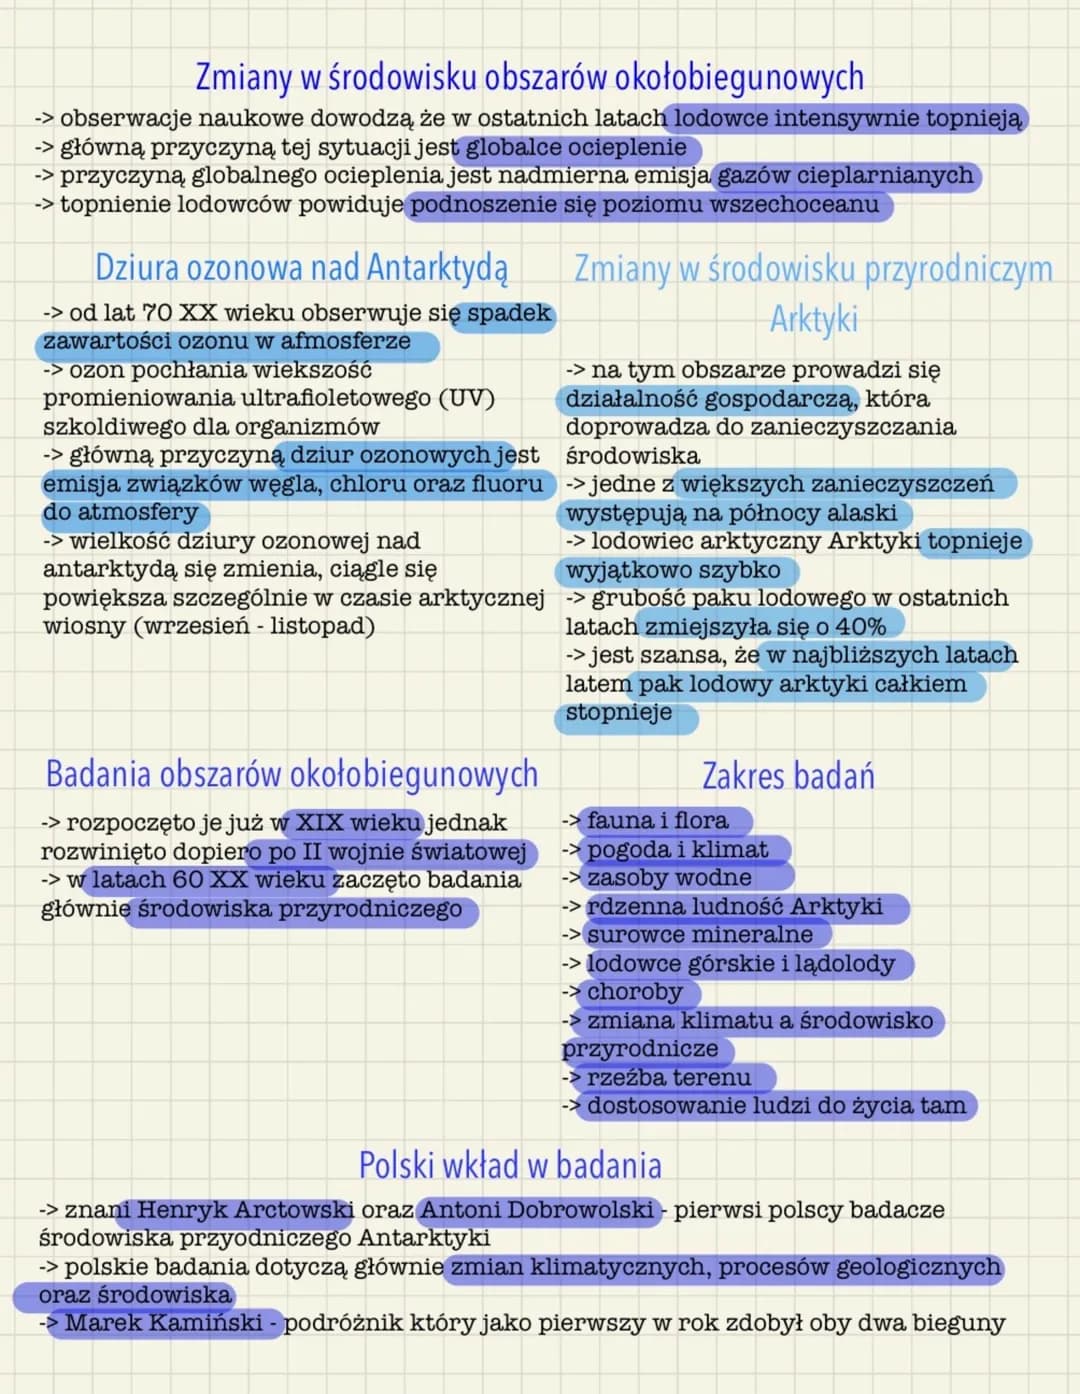 Zmiany w środowisku obszarów okołobiegunowych
-> obserwacje naukowe dowodzą że w ostatnich latach lodowce intensywnie topnieją
-> główną przyczyną tej sytuacji jest globalce ocieplenie
-> przyczyną globalnego ocieplenia jest nadmierna emisja gazów cieplarnianych
-> topnienie lodowców powiduje podnoszenie się poziomu wszechoceanu
Dziura ozonowa nad Antarktydą
-> od lat '70 XX wieku obserwuje się spadek
zawartości ozonu w afmosferze
-> ozon pochłania wiekszość
promieniowania ultrafioletowego (UV)
szkoldiwego dla organizmów
-> główną przyczyną dziur ozonowych jest
emisja związków węgla, chloru oraz fluoru
do atmosfery
-> wielkość dziury ozonowej nad
antarktydą się zmienia, ciągle się
powiększa szczególnie w czasie arktycznej
wiosny (wrzesień - listopad)
Zmiany w środowisku przyrodniczym
Arktyki
-> na tym obszarze prowadzi się
działalność gospodarczą, która
doprowadza do zanieczyszczania
środowiska
-> jedne z większych zanieczyszczeń
występują na północy alaski
-> lodowiec arktyczny Arktyki topnieje
wyjątkowo szybko
-> grubość paku lodowego w ostatnich
latach zmiejszyła się o 40%
-> jest szansa, że w najbliższych latach
latem pak lodowy arktyki całkiem
stopnieje
Badania obszarów okołobiegunowych
-> rozpoczęto je już w XIX wieku jednak
rozwinięto dopiero po II wojnie światowej
-> w latach 60 XX wieku zaczęto badania
głównie środowiska przyrodniczego
Zakres badań
-> fauna i flora
-> pogoda i klimat
-> zasoby wodne
-> rdzenna ludność Arktyki
-> surowce mineralne
-> lodowce górskie i lądolody
-> choroby
-> zmiana klimatu a środowisko
przyrodnicze
-> rzeźba terenu
-> dostosowanie ludzi do życia tam
Polski wkład w badania
-> znani Henryk Arctowski oraz Antoni Dobrowolski - pierwsi polscy badacze
środowiska przyodniczego Antarktyki
-> polskie badania dotyczą głównie zmian klimatycznych, procesów geologicznych
oraz środowiska
-> Marek Kamiński - podróżnik który jako pierwszy w rok zdobył oby dwa bieguny